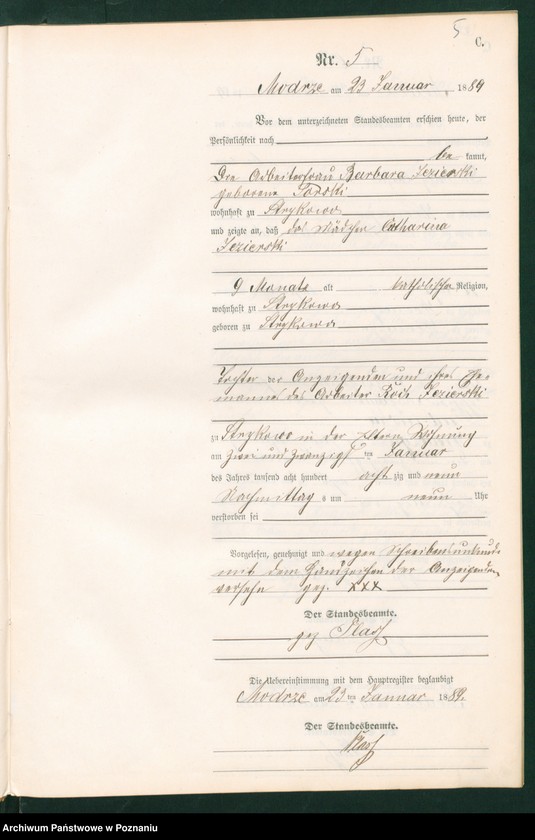 5
C.
Nr. 5
Modrze am 23 Januar 1889
Vor dem unterzeichneten Standesbeamten erschien heute, der
Persönlichkeit nach
be kannt,
Die Arbeiterfrau Barbara Jezierski
geborene Gorski
wohnhaft zu Strykowo
und zeigte an, daß das Mädchen Catharina
Jezierski
9 Monate alt katholischer Religion,
wohnhaft zu Strykowo
geboren zu Strykowo
Tochter der Anzeigenden und ihres Ehe
mannes des Arbeiter Jezierski
zu Strykowo in der Wohnung
am zwei und zwanzigsten Januar
des Jahres tausend acht hundert acht zig und neun
Nachmittag s um neun Uhr
verstorben sei
Vorgelesen, genehmigt und wegen Schreibensunkunde
mit dem Handzeichen der Anzeigenden
versehn gez. xxx
Der Standesbeamte.
gez
Die Uebereinstimmung mit dem Hauptregister beglaubigt
Modrze am 23 ten Januar 1889.
Der Standesbeamte.
Archiwum Państwowe w Poznaniu